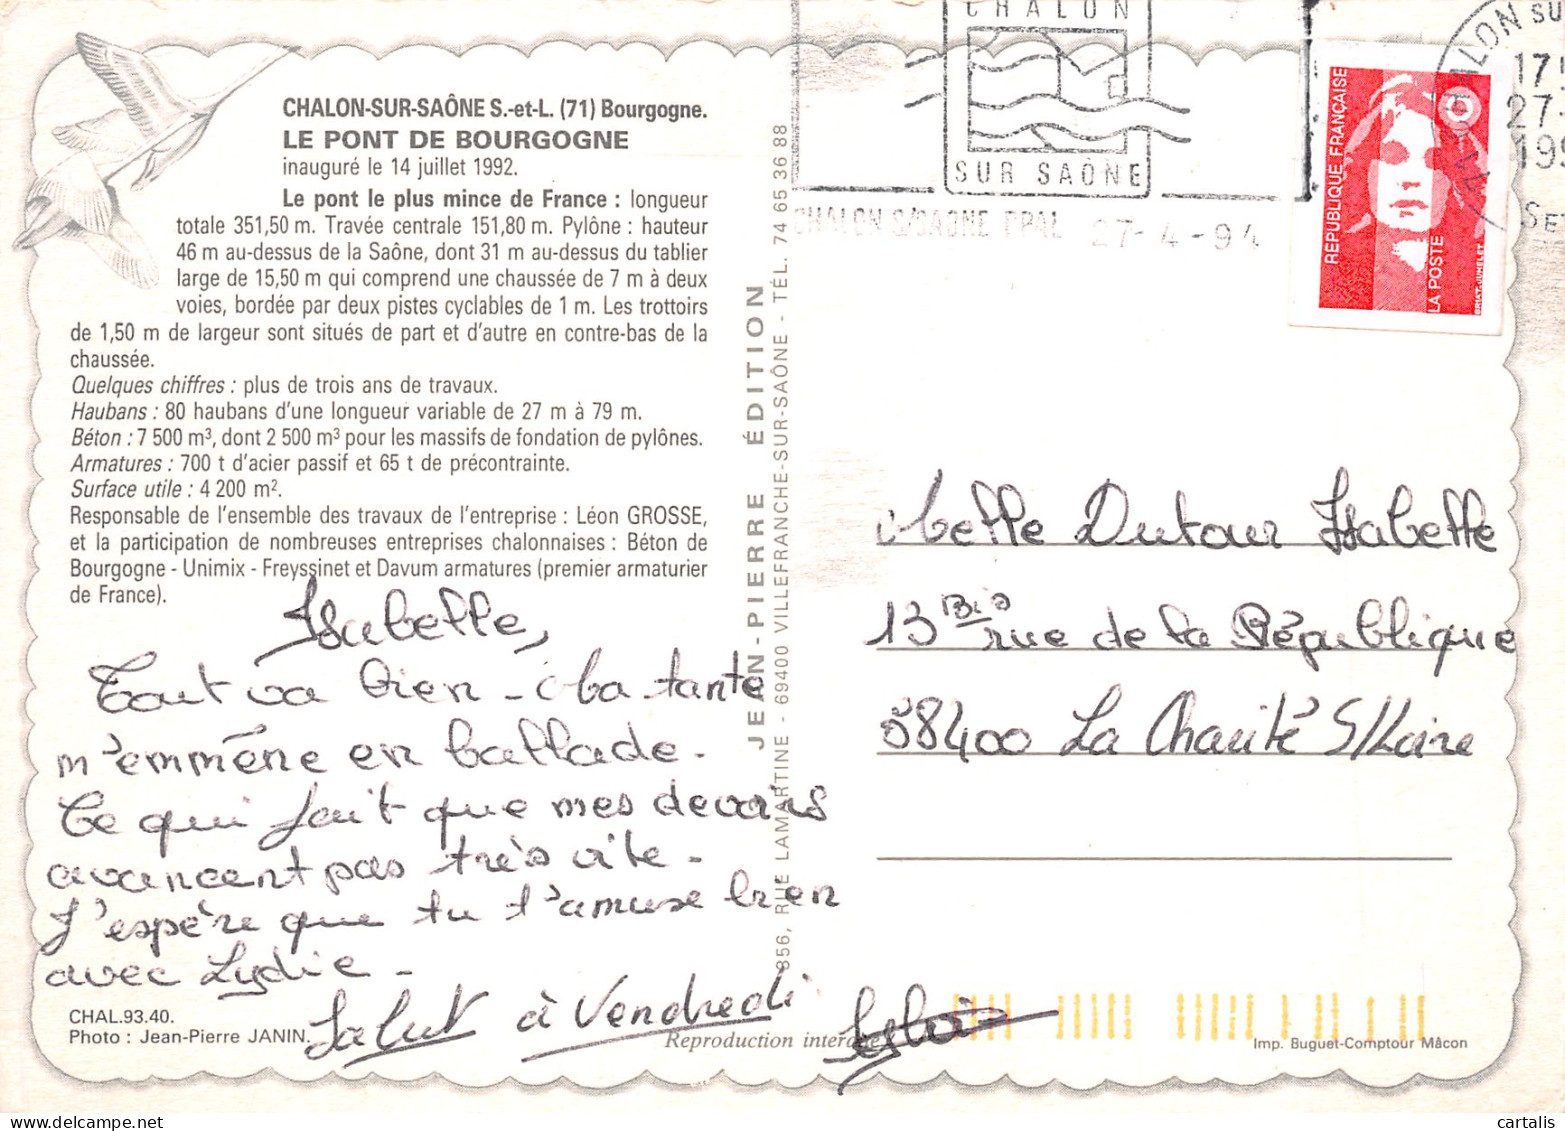 CHALON-SUR-SAÔNE S.-et-L. (71) Bourgogne.
LE PONT DE BOURGOGNE
inauguré le 14 juillet 1992.
Le pont le plus mince de France : longueur
totale 351,50 m. Travée centrale 151,80 m. Pylône : hauteur
46 m au-dessus de la Saône, dont 31 m au-dessus du tablier
large de 15,50 m qui comprend une chaussée de 7 m à deux
voies, bordée par deux pistes cyclables de 1 m. Les trottoirs
de 1,50 m de largeur sont situés de part et d'autre en contre-bas de la
chaussée.
Quelques chiffres : plus de trois ans de travaux.
Haubans : 80 haubans d'une longueur variable de 27 m à 79 m.
Béton : 7 500 m³, dont 2 500 m³ pour les massifs de fondation de pylônes.
Armatures : 700 t d'acier passif et 65 t de précontrainte.
Surface utile : 4 200 m².
Responsable de l'ensemble des travaux de l'entreprise : Léon GROSSE,
et la participation de nombreuses entreprises chalonnaises : Béton de
Bourgogne - Unimix - Freyssinet et Davum armatures (premier armaturier
de France).
Isabelle,
Tout va bien - Ma tante
m'emmène en ballade.
Ce qui fait que mes devoirs
avancent pas très vite.
J'espère que tu t'amuse bien
avec Lydie -
Salut à Vendredi
CHAL.93.40.
Photo : Jean-Pierre JANIN.
Reproduction interdite
JEAN-PIERRE ÉDITION
856, RUE LAMARTINE - 69400 VILLEFRANCHE-SUR-SAÔNE - TÉL. 74 65 36 88
CHALON
SUR SAÔNE
CHALON S/SAONE PPAL 27-4-94
RÉPUBLIQUE FRANÇAISE
LA POSTE
BRIAT-JUMELET
Melle Dutour Isabelle
13 Bis rue de la République
58400 La Charité S/Loire
Imp. Buguet-Comptour Mâcon